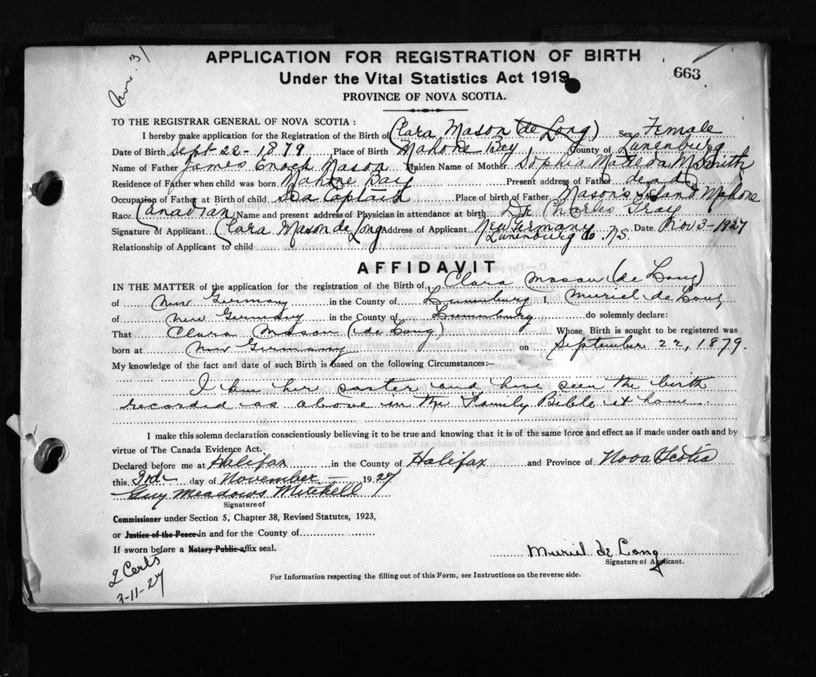 Nov. 3/
APPLICATION FOR REGISTRATION OF BIRTH
Under the Vital Statistics Act 1919
663
PROVINCE OF NOVA SCOTIA.
TO THE REGISTRAR GENERAL OF NOVA SCOTIA :
I hereby make application for the Registration of the Birth of Clara Mason (de Long) Sex Female
Date of Birth Sept 22 - 1879 Place of Birth Mahone Bay, County of Lunenburg
Name of Father James Enoch Mason Maiden Name of Mother Sophia
Residence of Father when child was born Mahone Bay Present address of Father dead
Occupation of Father at Birth of child Sea Captain Place of birth of Father Mason's Island Mahone
Race. Canadian Name and present address of Physician in attendance at birth Dr Charles Gray
Signature of Applicant Clara Mason de Long Address of Applicant New Germany Lunenburg Co N.S. Date. Nov 3 - 1927
Relationship of Applicant to child
AFFIDAVIT
IN THE MATTER of the application for the registration of the Birth of Clara Mason (de Long)
of New Germany in the County of Lunenburg I, Muriel de Long
of New Germany in the County of Lunenburg do solemnly declare:
That Clara Mason (de Long) Whose Birth is sought to be registered was
born at New Germany on September 22, 1879.
My knowledge of the fact and date of such Birth is based on the following Circumstances:—
I am her and have seen the birth
recorded as above in the Family Bible at home.
I make this solemn declaration conscientiously believing it to be true and knowing that it is of the same force and effect as if made under oath and by
virtue of The Canada Evidence Act.
Declared before me at Halifax in the County of Halifax and Province of Nova Scotia
this 3rd day of November 1927
Guy Meadows Mitchell
Signature of
Commissioner under Section 5, Chapter 38, Revised Statutes, 1923,
or Justice of the Peace in and for the County of
If sworn before a Notary Public affix seal.
Muriel de Long
Signature of Applicant.
2 Certs
3-11-27
For Information respecting the filling out of this Form, see Instructions on the reverse side.